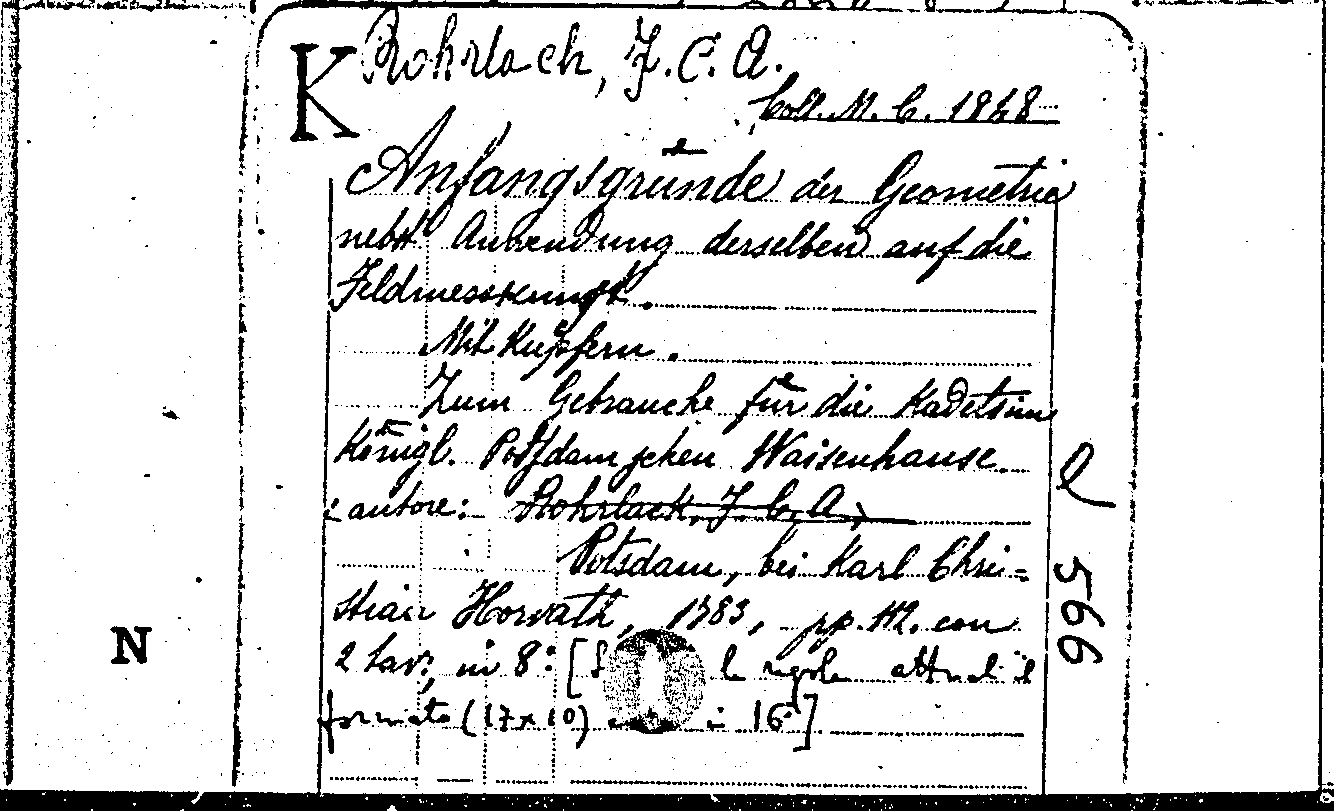 K Rohrlach, J. C. A.
Coll. M. C. 1848
Anfangsgründe der Geometrie
nebst Anwendung derselben auf die
Feldmesskunst.
Mit Kupfern.
Zum Gebrauche für die Kadets im
Königl. Potsdamschen Waisenhause
autore: Rohrlack, J. C. A.
Potsdam, bei Karl Chri-
stian Horvath, 1783, pp. 112. con
2 tav., in 8: [ le regole attual il
formato (17x10) in 16°]
l 566
N